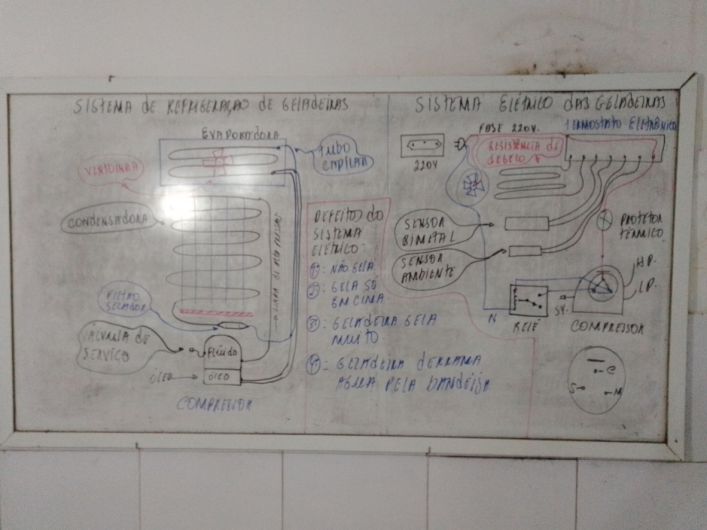 SISTEMA DE REFRIGERAÇÃO DE GELADEIRAS
EVAPORADORA
TUBO
CAPILAR
VENTOINHA
CONDENSADORA
FILTRO
SECADOR
VALVULA DE
SERVIÇO
Fluido
ÓLEO
ÓLEO
COMPRESSOR
DEFEITOS DO
SISTEMA
ELÉTRICO:
1º: NÃO GELA
2º: GELA SÓ
EM CIMA
3º: GELADEIRA GELA
MUITO
4º: GELADEIRA DERRAMA
AGUA PELA BANDEIJA
SISTEMA ELÉTRICO DAS GELADEIRAS
FASE 220V.
TERMOSTATO ELETRÔNICO
220V
RESISTÊNCIA DE
DEGELO
SENSOR
BIMETAL
SENSOR
AMBIENTE
PROTETOR
TÉRMICO
N
RELÉ
SV.
H.P.
L.P.
COMPRESSOR
C
S
M